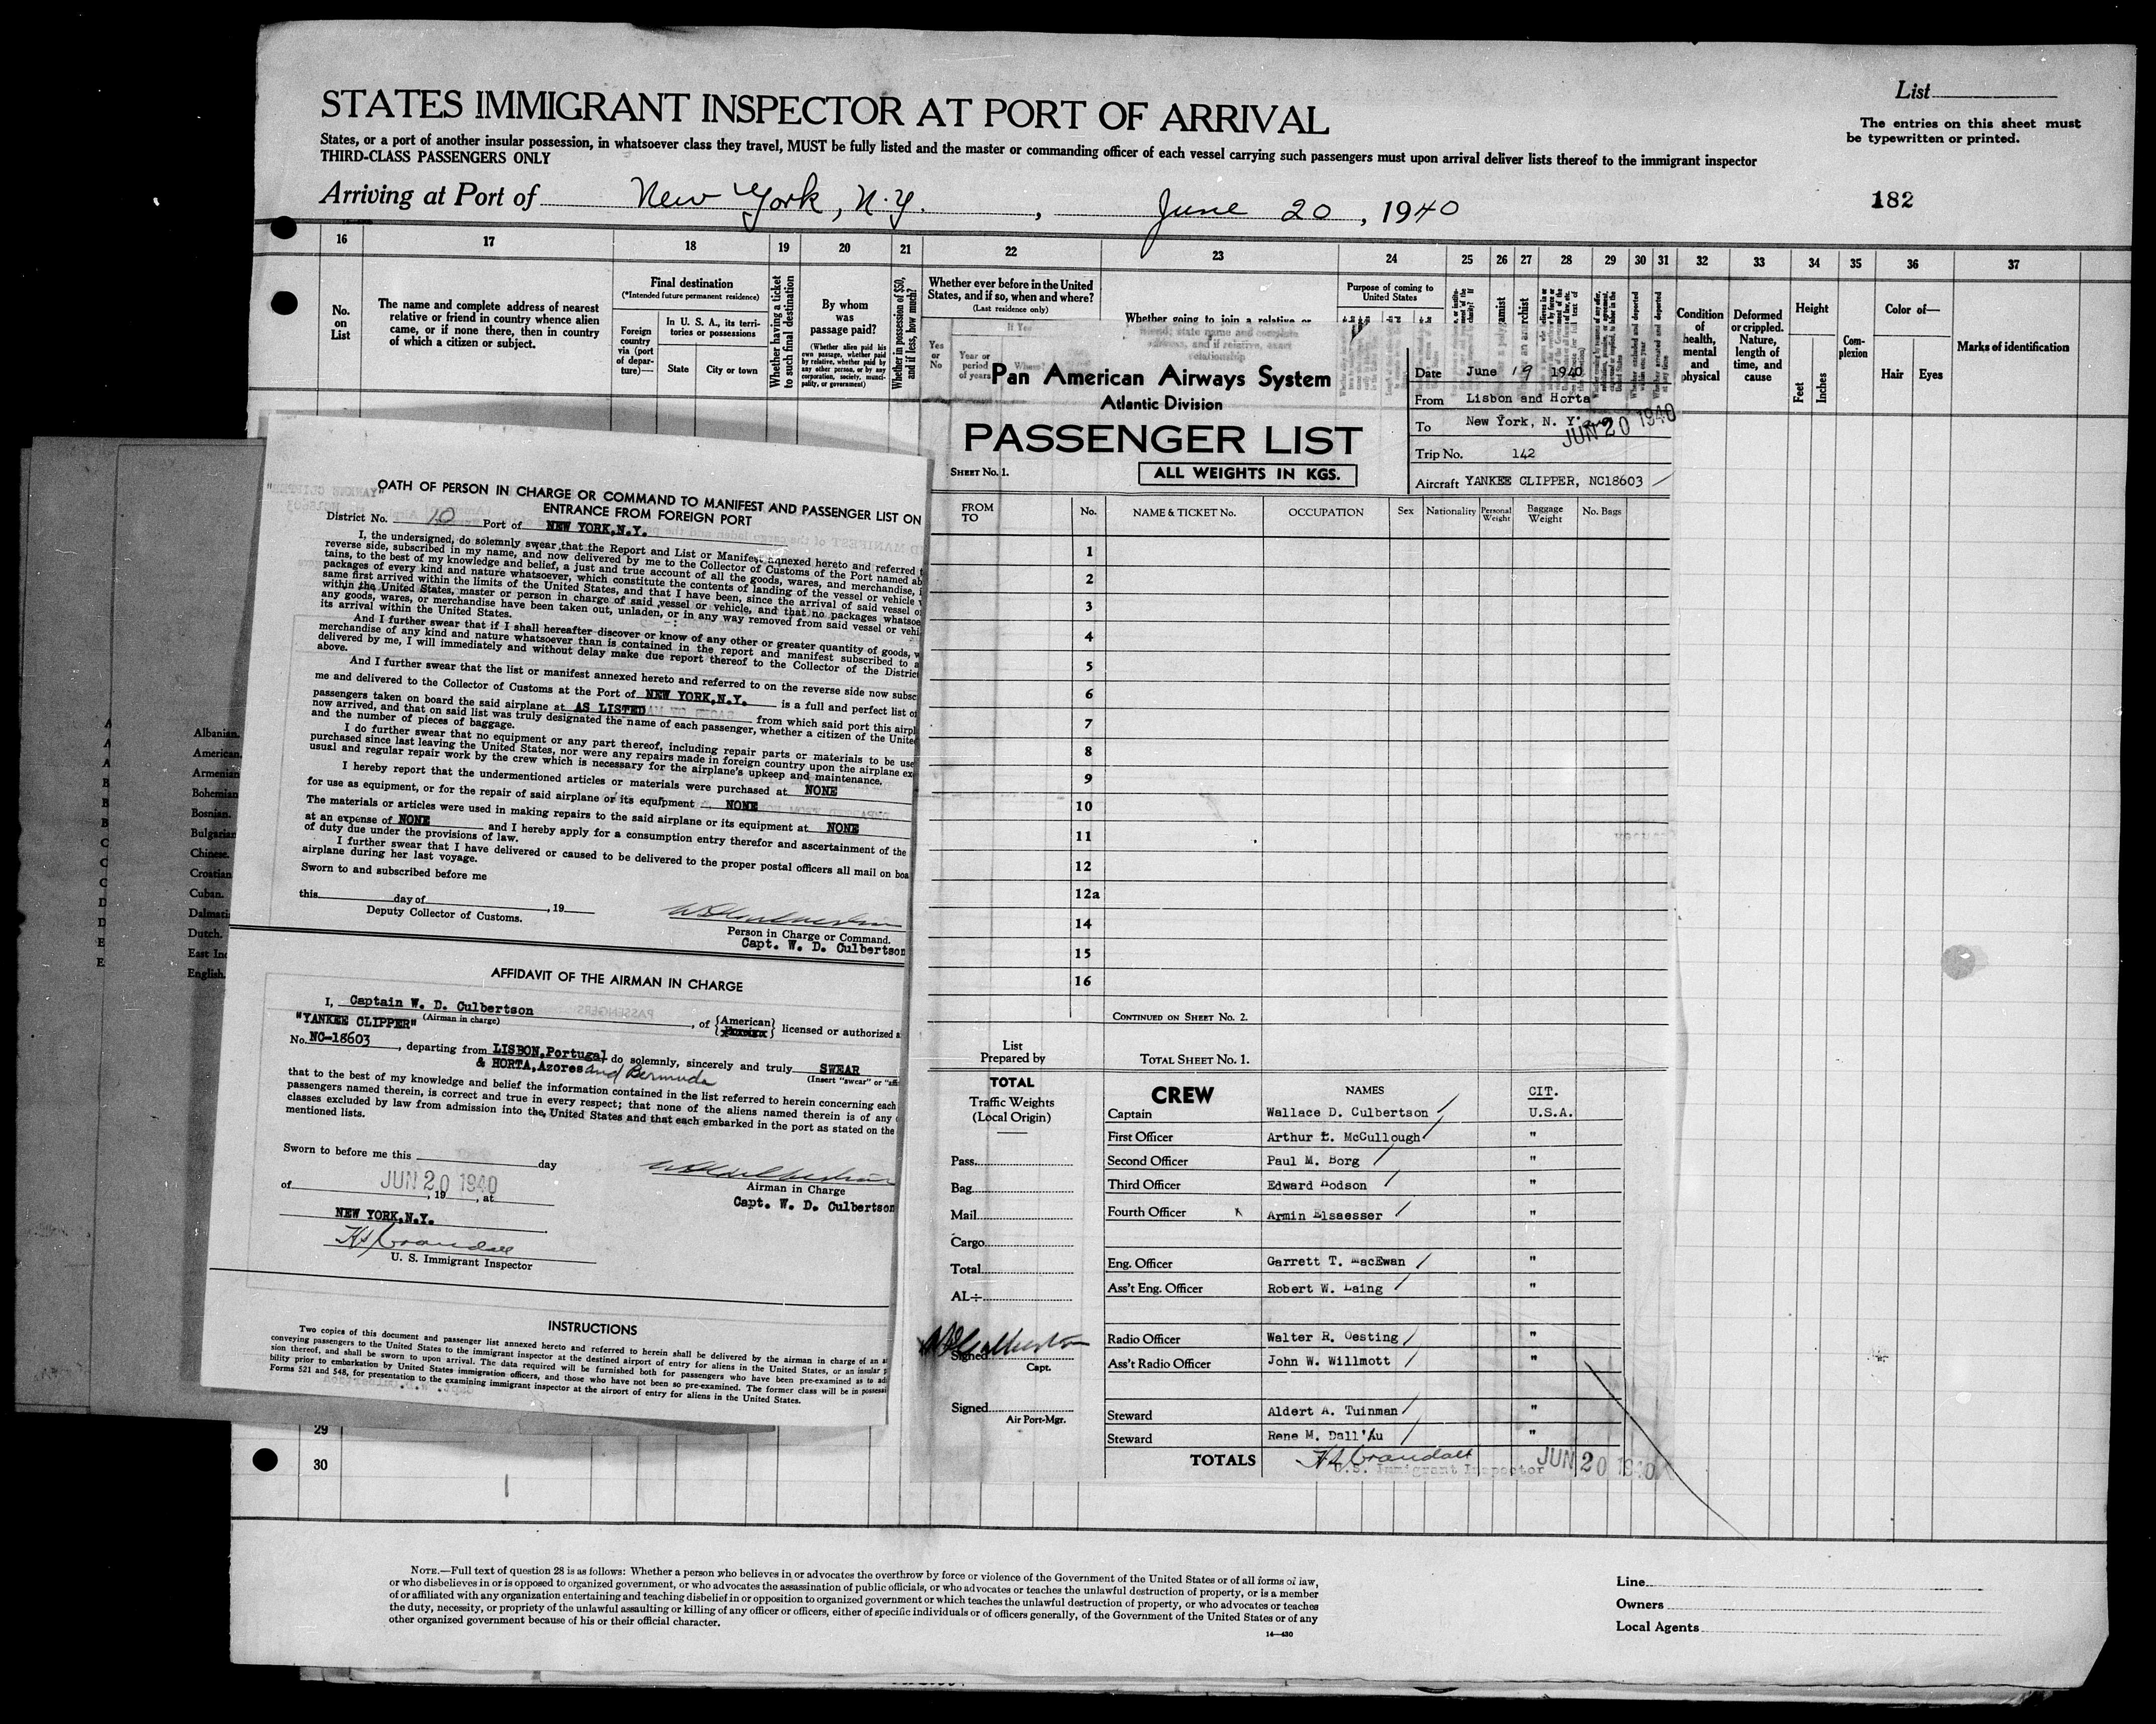 List
STATES IMMIGRANT INSPECTOR AT PORT OF ARRIVAL
The entries on this sheet must
be typewritten or printed.
States, or a port of another insular possession, in whatsoever class they travel, MUST be fully listed and the master or commanding officer of each vessel carrying such passengers must upon arrival deliver lists thereof to the immigrant inspector
THIRD-CLASS PASSENGERS ONLY
Arriving at Port of New York, N.Y. , June 20 , 1940
182
16 17 18 19 20 21 22 23 24 25 26 27 28 29 30 31 32 33 34 35 36 37
No.
on
List
The name and complete address of nearest
relative or friend in country whence alien
came, or if none there, then in country
of which a citizen or subject.
Final destination
(*Intended future permanent residence)
Foreign
country
via (port
of depar-
ture)—
In U. S. A., its terri-
tories or possessions
State
City or town
Whether having a ticket
to such final destination
By whom
was
passage paid?
(Whether alien paid his
own passage, whether paid
by relative, whether paid by
any other person, or by any
corporation, society, munici-
pality, or government)
Whether in possession of $50,
and if less, how much?
Whether ever before in the United
States, and if so, when and where?
(Last residence only)
If Yes
Yes
or
No
Year or
period
of years
Where?
Whether going to join a relative or
friend; state name and complete
address, and if relative, exact
relationship
Purpose of coming to
United States
Condition
of
health,
mental
and
physical
Deformed
or crippled.
Nature,
length of
time, and
cause
Height
Feet
Inches
Com-
plexion
Color of—
Hair
Eyes
Marks of identification
Pan American Airways System
Atlantic Division
PASSENGER LIST
SHEET No. 1.
ALL WEIGHTS IN KGS.
Date June 19 1940
From Lisbon and Horta
To New York, N. Y.
JUN 20 1940
Trip No. 142
Aircraft YANKEE CLIPPER, NC18603
FROM
TO
No.
NAME & TICKET No.
OCCUPATION
Sex
Nationality
Personal
Weight
Baggage
Weight
No. Bags
1
2
3
4
5
6
7
8
9
10
11
12
12a
14
15
16
CONTINUED ON SHEET No. 2.
List
Prepared by
TOTAL SHEET No. 1.
TOTAL
Traffic Weights
(Local Origin)
Pass.
Bag.
Mail
Cargo
Total
AL÷
Signed
Capt.
Signed
Air Port-Mgr.
CREW NAMES CIT.
Captain Wallace D. Culbertson U.S.A.
First Officer Arthur L. McCullough "
Second Officer Paul M. Borg "
Third Officer Edward Hodson "
Fourth Officer Armin Elsaesser "
Eng. Officer Garrett T. MacEwan "
Ass't Eng. Officer Robert W. Laing "
Radio Officer Walter R. Oesting "
Ass't Radio Officer John W. Willmott "
Steward Aldert A. Tuinman "
Steward Rene M. Dall'Au "
TOTALS
H J Crandall
U.S. Immigrant Inspector
JUN 20 1940
OATH OF PERSON IN CHARGE OR COMMAND TO MANIFEST AND PASSENGER LIST ON
ENTRANCE FROM FOREIGN PORT
District No. 10 Port of NEW YORK,N.Y.
I, the undersigned, do solemnly swear that the Report and List or Manifest annexed hereto and referred
reverse side, subscribed in my name, and now delivered by me to the Collector of Customs of the Port named ab
tains, to the best of my knowledge and belief, a just and true account of all the goods, wares, and merchandise,
packages of every kind and nature whatsoever, which constitute the contents of landing of the vessel or vehicle
same first arrived within the limits of the United States, and that I have been, since the arrival of said vessel o
within the United States, master or person in charge of said vessel or vehicle, and that no packages whatsoe
any goods, wares, or merchandise have been taken out, unladen, or in any way removed from said vessel or vehi
its arrival within the United States.
And I further swear that if I shall hereafter discover or know of any other or greater quantity of goods, w
merchandise of any kind and nature whatsoever than is contained in the report and manifest subscribed to a
delivered by me, I will immediately and without delay make due report thereof to the Collector of the District
above.
And I further swear that the list or manifest annexed hereto and referred to on the reverse side now subsc
me and delivered to the Collector of Customs at the Port of NEW YORK,N.Y. is a full and perfect list o
passengers taken on board the said airplane at AS LISTED from which said port this airpl
now arrived, and that on said list was truly designated the name of each passenger, whether a citizen of the Unite
and the number of pieces of baggage.
I do further swear that no equipment or any part thereof, including repair parts or materials to be use
purchased since last leaving the United States, nor were any repairs made in foreign country upon the airplane ex
usual and regular repair work by the crew which is necessary for the airplane's upkeep and maintenance.
I hereby report that the undermentioned articles or materials were purchased at NONE
for use as equipment, or for the repair of said airplane or its equipment NONE
The materials or articles were used in making repairs to the said airplane or its equipment at NONE
at an expense of NONE and I hereby apply for a consumption entry therefor and ascertainment of the
of duty due under the provisions of law.
I further swear that I have delivered or caused to be delivered to the proper postal officers all mail on boa
airplane during her last voyage.
Sworn to and subscribed before me
this day of , 19
Deputy Collector of Customs.
Person in Charge or Command.
Capt. W. D. Culbertson
AFFIDAVIT OF THE AIRMAN IN CHARGE
I, Captain W. D. Culbertson
(Airman in charge)
"YANKEE CLIPPER" , of {American} licensed or authorized a
No. NC-18603 , departing from LISBON,Portugal do solemnly, sincerely and truly SWEAR
& HORTA,Azores and Bermuda (Insert "swear" or "affi
that to the best of my knowledge and belief the information contained in the list referred to herein concerning each
passengers named therein, is correct and true in every respect; that none of the aliens named therein is of any
classes excluded by law from admission into the United States and that each embarked in the port as stated on the
mentioned lists.
Sworn to before me this day
of JUN 20 1940 , 19 , at
NEW YORK,N.Y.
H J Crandall
U. S. Immigrant Inspector
Airman in Charge
Capt. W. D. Culbertson
INSTRUCTIONS
Two copies of this document and passenger list annexed hereto and referred to herein shall be delivered by the airman in charge of an a
conveying passengers to the United States to the immigrant inspector at the destined airport of entry for aliens in the United States, or an insular p
sion thereof, and shall be sworn to upon arrival. The data required will be furnished both for passengers who have been pre-examined as to ad
bility prior to embarkation by United States immigration officers, and those who have not been so pre-examined. The former class will be in possessi
Forms 521 and 548, for presentation to the examining immigrant inspector at the airport of entry for aliens in the United States.
Albanian.
American.
Armenian
Bohemian
Bosnian.
Bulgarian
Chinese.
Croatian
Cuban.
Dalmati
Dutch.
East Ind
English.
29
30
NOTE.—Full text of question 28 is as follows: Whether a person who believes in or advocates the overthrow by force or violence of the Government of the United States or of all forms of law,
or who disbelieves in or is opposed to organized government, or who advocates the assassination of public officials, or who advocates or teaches the unlawful destruction of property, or is a member
of or affiliated with any organization entertaining and teaching disbelief in or opposition to organized government or which teaches the unlawful destruction of property, or who advocates or teaches
the duty, necessity, or propriety of the unlawful assaulting or killing of any officer or officers, either of specific individuals or of officers generally, of the Government of the United States or of any
other organized government because of his or their official character.
14—430
Line
Owners
Local Agents